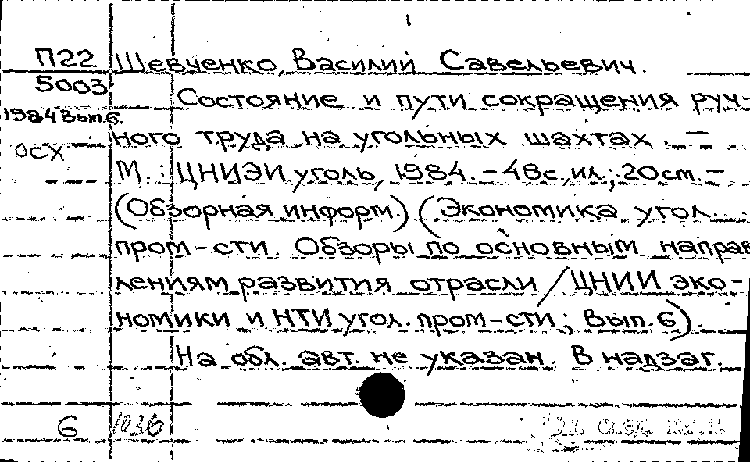 П22 Шевченко, Василий Савельевич.
5003
Состояние и пути сокращения руч-
1984 вып.6.
ного труда на угольных шахтах. —
ОСХ
М.: ЦНИЭИуголь, 1984. - 48с., ил.; 20см. -
(Обзорная информ.) (Экономика угол.
пром-сти. Обзоры по основным направ
лениям развития отрасли / ЦНИИ эко-
номики и НТИ угол. пром-сти; Вып. 6).
На обл. авт. не указан. В надзаг.
6 1036